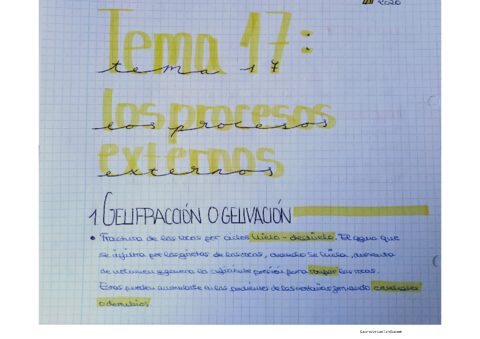 2020
Tema 17:
tema 17
los procesos
los procesos
externos
externos
1. GELIFRACCIÓN O GELIVACIÓN
• Fractura de las rocas por ciclos hielo - deshielo. El agua que
se infiltra por las grietas de las rocas, cuando se hiela, aumenta
de volumen y genera la suficiente presión para romper las rocas.
Estas pueden acumularse en las pendientes de las montañas formando
o derrubios